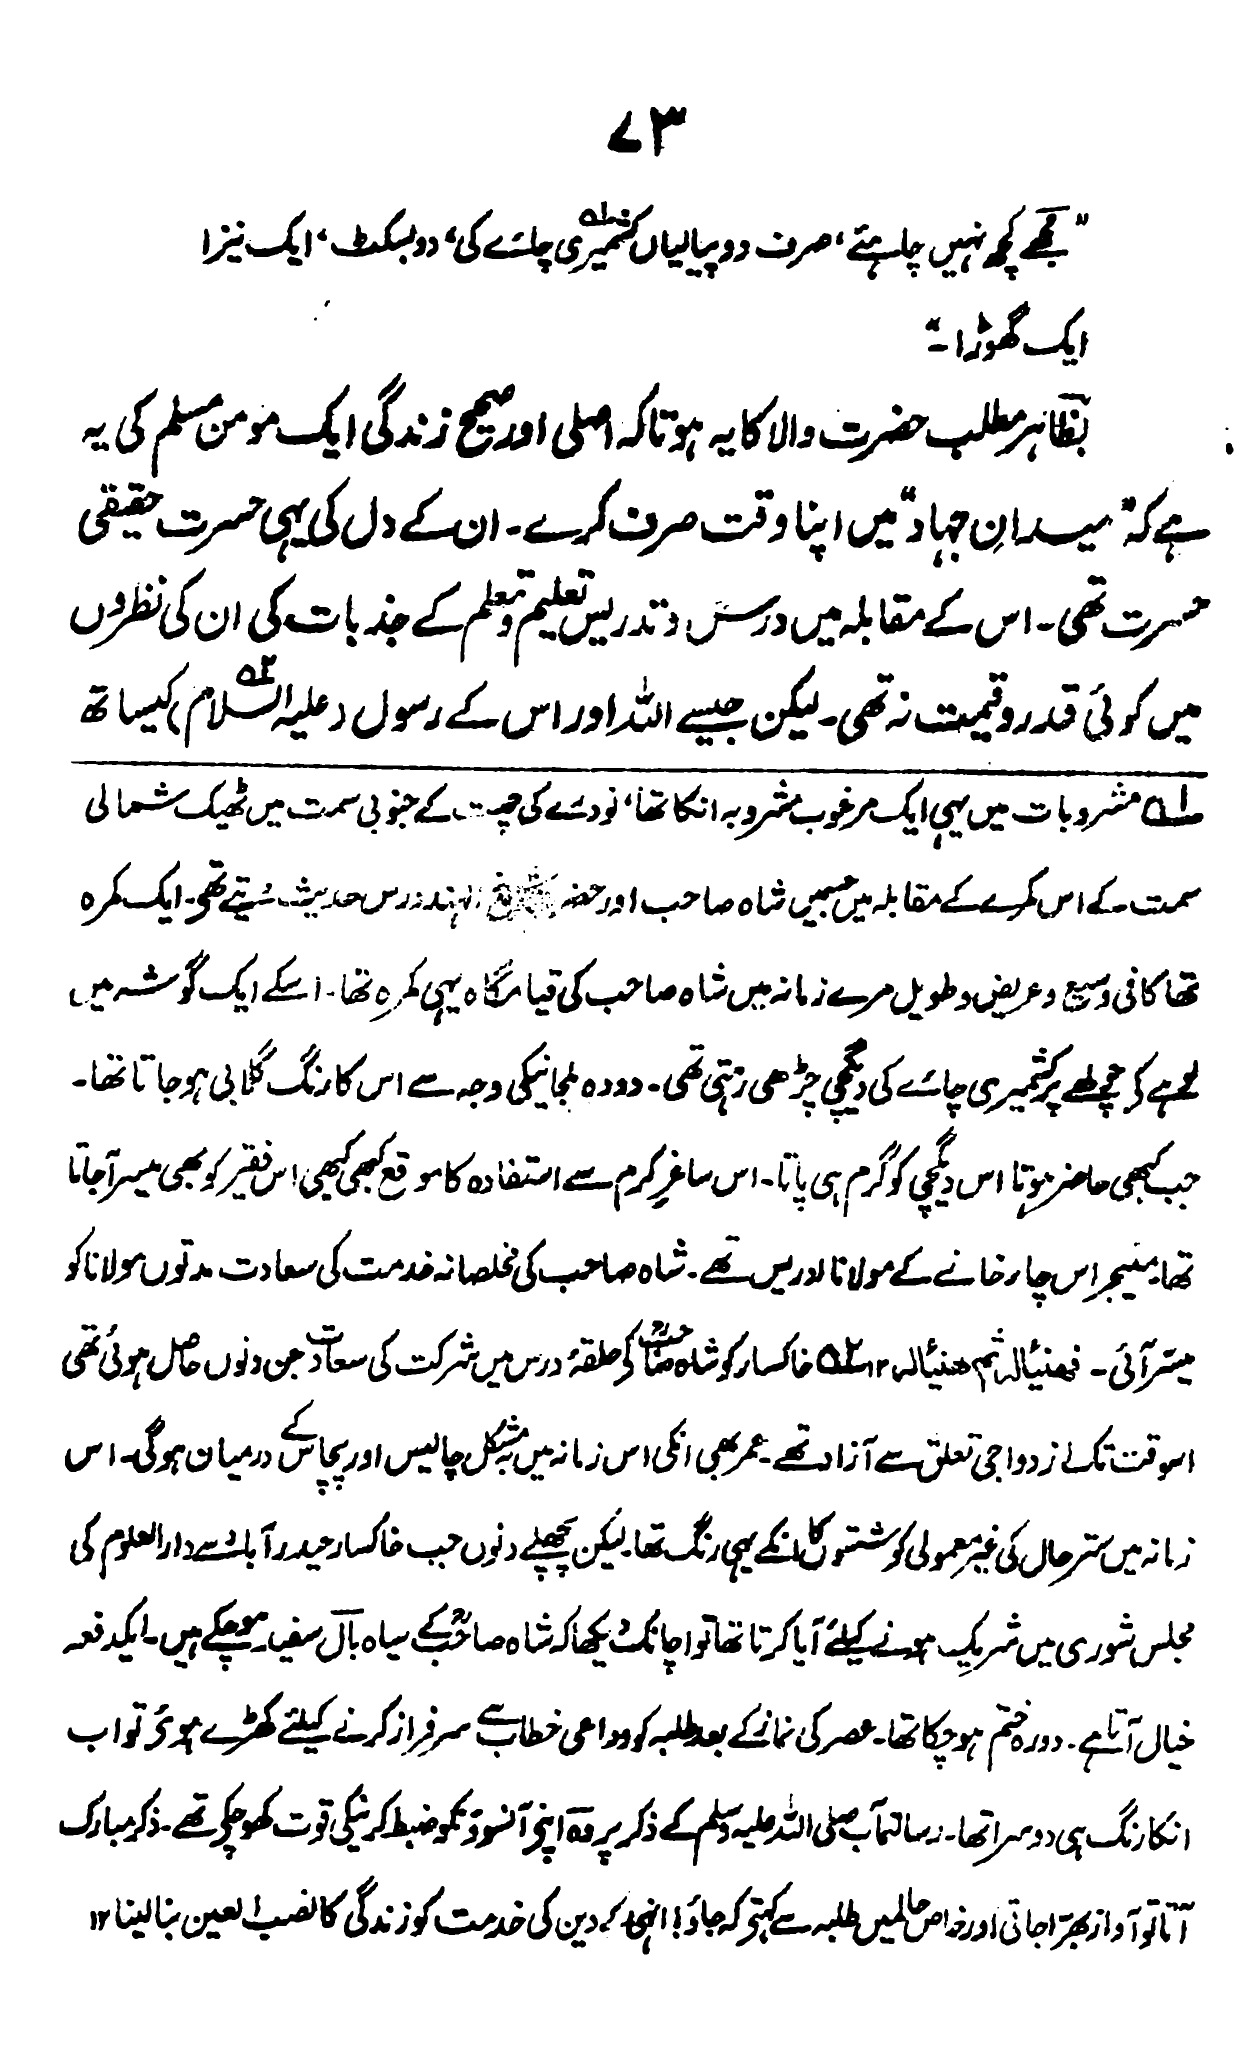 ۷۳
"مجھے کچھ نہیں چاہئے، صرف دو پیالیاں کشمیری ۱ھ چائے کی، دو بسکٹ، ایک نیزا
ایک گھوڑا۔"
بظاہر مطلب حضرت والا کا یہ ہوتا کہ اصلی اور صحیح زندگی ایک مومن مسلم کی یہ
ہے کہ "میدانِ جہاد" میں اپنا وقت صرف کرے۔ ان کے دل کی یہی حسرت حقیقی
حسرت تھی۔ اس کے مقابلہ میں درس و تدریس تعلیم و تعلم کے جذبات کی ان کی نظروں
میں کوئی قدر و قیمت نہ تھی۔ لیکن جیسے اللہ اور اس کے رسول (علیہ السلام) ۲ھ کیساتھ
۱ھ مشروبات میں یہی ایک مرغوب مشروبہ انکا تھا، نودرے کی چھت کے جنوبی سمت میں ٹھیک شمالی
سمت کے اس کمرے کے مقابلہ میں جسمیں شاہ صاحب اور حضرت شیخ الہند درس حدیث دیتے تھے۔ ایک کمرہ
تھا کافی وسیع و عریض و طویل مرے زمانہ میں شاہ صاحب کی قیام گاہ یہی کمرہ تھا۔ اسکے ایک گوشہ میں
لوہے کے چولھے پر کشمیری چائے کی دیگچی چڑھی رہتی تھی۔ دودھ ملجانیکی وجہ سے اس کا رنگ گلابی ہوجاتا تھا۔
جب کبھی حاضر ہوتا اس دیگچی کو گرم ہی پاتا۔ اس ساغرِ کرم سے استفادہ کا موقع کبھی کبھی اس فقیر کو بھی میسر آجاتا
تھا۔ منیجر اس چار خانے کے مولانا ادریس تھے۔ شاہ صاحب کی مخلصانہ خدمت کی سعادت مدتوں مولانا کو
میسّر آئی۔ فھنیئالہ ثم ھنیئالہ ۱۲ ۲ھ خاکسار کو شاہ صاحب کے حلقۂ درس میں شرکت کی سعادت جن دنوں حاصل ہوئی تھی
اسوقت تک ازدواجی تعلق سے آزاد تھے۔ عمر بھی انکی اس زمانہ میں بہ مشکل چالیس اور پچاس کے درمیان ہوگی۔ اس
زمانہ میں ستر حال کی غیر معمولی کوششوں کا انکے یہی رنگ تھا۔ لیکن پچھلے دنوں جب خاکسار حیدرآباد سے دارالعلوم کی
مجلس شوریٰ میں شریک ہونے کیلئے آیا کرتا تھا تو اچانک دیکھا کہ شاہ صاحبؒ کے سیاہ بال سفید ہوچکے ہیں۔ ایکدفعہ
خیال آتا ہے۔ دورہ ختم ہوچکا تھا۔ عصر کی نماز کے بعد طلبہ کو وداعی خطاب سے سرفراز کرنے کیلئے کھڑے ہوئے تو اب
انکا رنگ ہی دوسرا تھا۔ رسالتمآب صلی اللہ علیہ وسلم کے ذکر پر وہ اپنے آنسوؤنکو ضبط کرنیکی قوت کھو چکے تھے۔ ذکر مبارک
آتا تو آواز بھرّا جاتی اور خاص حالمیں طلبہ سے کہتے کہ جاؤ! انہی کے دین کی خدمت کو زندگی کا نصب العین بنا لینا ۱۲